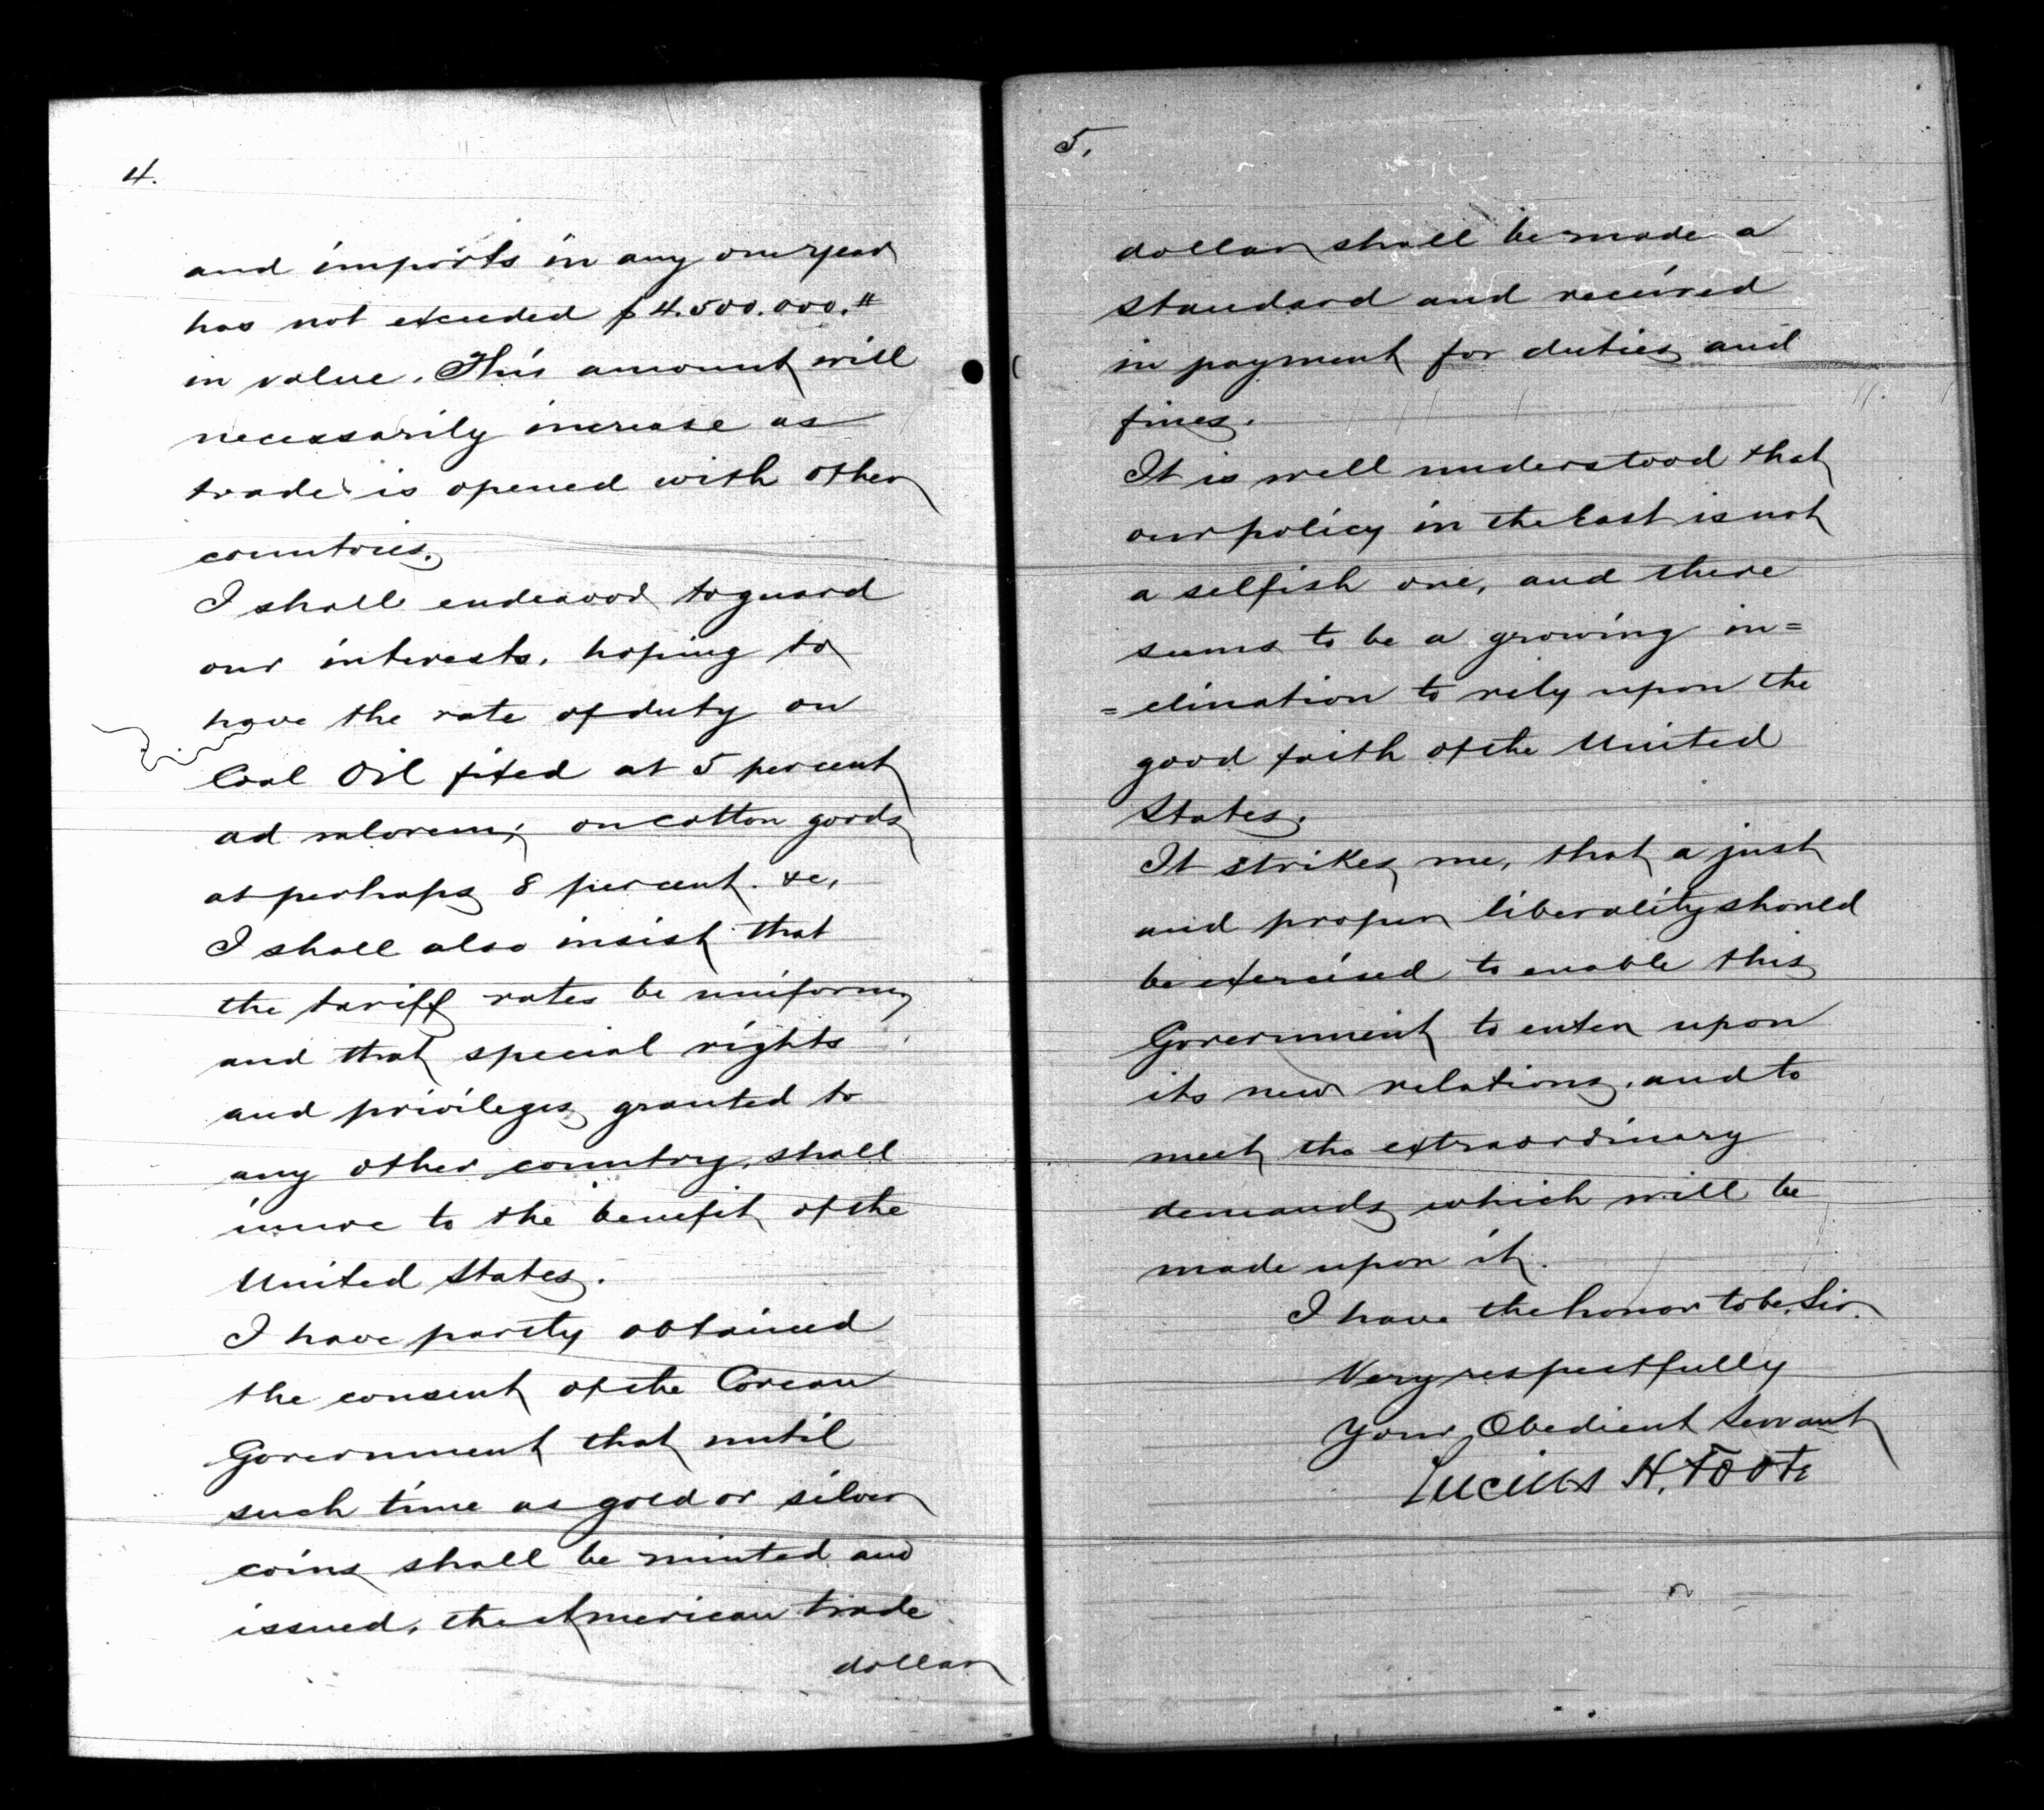 4.
and imports in any one year
has not exceeded $4.500.000.
in value. This amount will
necessarily increase as
trade is opened with other
countries.
I shall endeavor to guard
our interests, hoping to
have the rate of duty on
Coal Oil fixed at 5 percent
ad valorem; on cotton goods
at perhaps 8 percent. &c,
I shall also insist that
the tariff rates be uniform,
and that special rights
and privileges granted to
any other country, shall
inure to the benefit of the
United States.
I have partly obtained
the consent of the Corean
Government that until
such time as gold or silver
coins shall be minted and
issued, the American trade
dollar
5,
dollar shall be made a
standard and received
in payment for duties and
fines.
It is well understood that
our policy in the East is not
a selfish one, and there
seems to be a growing in=
=clination to rely upon the
good faith of the United
States.
It strikes me, that a just
and proper liberality should
be exercised to enable this
Government to enter upon
its new relations, and to
meet the extraordinary
demands which will be
made upon it.
I have the honor to be, Sir
Very respectfully
Your Obedient Servant
Lucius H. Foote